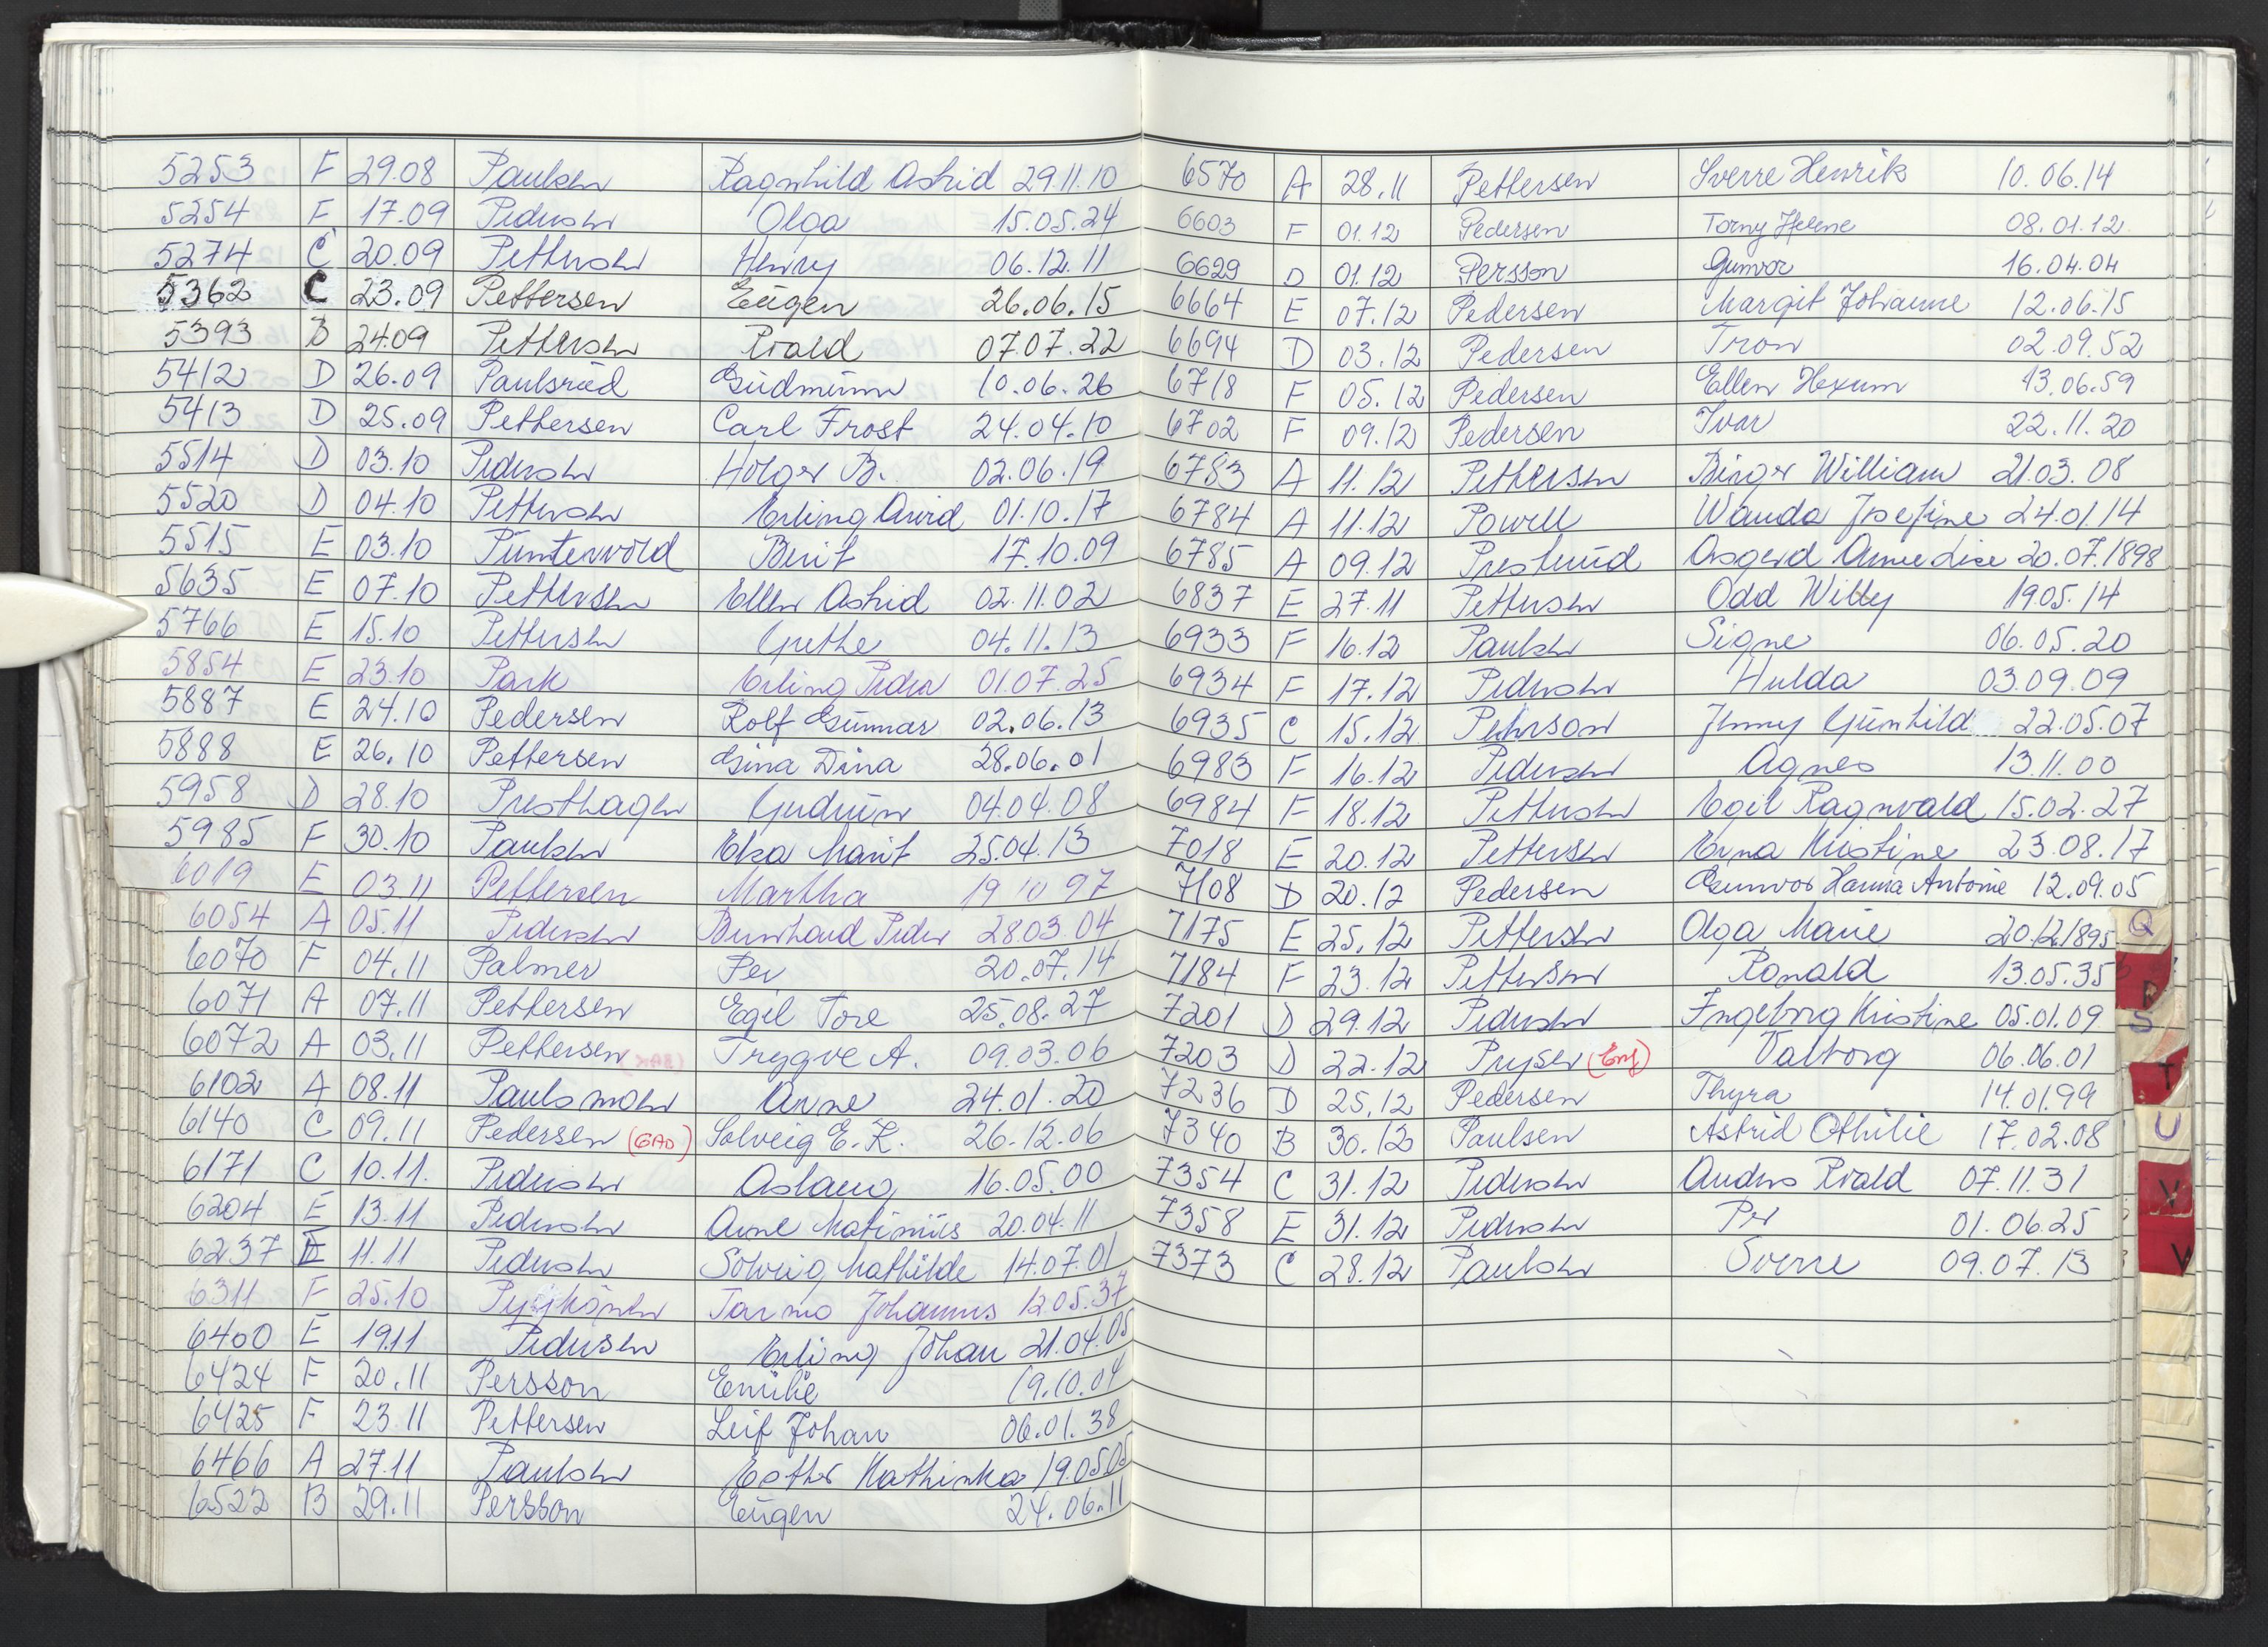 5253 F 29.08 Paulsen Ragnhild Astrid 29.11.10
5254 F 17.09 Pedersen Olga 15.05.24
5274 C 20.09 Pettersen Henry 06.12.11
5362 C 23.09 Pettersen Eugen 26.06.15
5393 B 24.09 Pettersen Roald 07.07.22
5412 D 26.09 Paulsrud Gudmunn 10.06.26
5413 D 25.09 Pettersen Carl Frost 24.04.10
5514 D 03.10 Pedersen Holger B. 02.06.19
5520 D 04.10 Pettersen Erling Arvid 01.10.17
5515 E 03.10 Puntervold Berit 17.10.09
5635 E 07.10 Pettersen Ellen Astrid 02.11.02
5766 E 15.10 Pettersen Grethe 04.11.13
5854 E 23.10 Park Erling Peder 01.07.25
5887 E 24.10 Pedersen Rolf Gunnar 02.06.13
5888 E 26.10 Pettersen Gina Dina 28.06.01
5958 D 28.10 Presthagen Gudrun 04.04.08
5985 F 30.10 Paulsen Elsa Marit 25.04.13
6019 E 03.11 Pettersen Martha 19 10 97
6054 A 05.11 Pedersen Bernhard Peder 28.03.04
6070 F 04.11 Palmer Per 20.07.14
6071 A 07.11 Pettersen Egil Tore 25.08.27
6072 A 03.11 Pettersen Trygve A. 09.03.06
6102 A 08.11 Paulsmoen Arne 24.01.20
6140 C 09.11 Pedersen (GAD) Solveig E. K. 26.12.06
6171 C 10.11. Pedersen Aslaug 16.05.00
6204 E 13.11 Pedersen Arne Matinius 20.04.11
6237 E 11.11 Pedersen Solveig Mathilde 14.07.01
6311 F 25.10 Tarmo Johannes 12.05.37
6400 E 19.11 Pedersen Erling Johan 21.04.05
6424 F 20.11 Persson Emilie 19.10.04
6425 F 23.11 Pettersen Leif Johan 06.01.38
6466 A 27.11 Paulsen Esther Kathinka 19.05.05
6522 B 29.11 Persson Eugen 24.06.11
6570 A 28.11 Pettersen Sverre Henrik 10.06.14
6603 F 01.12 Pedersen Torny Helene 08.01.12
6629 D 01.12 Persson Gunvor 16.04.04
6664 E 07.12 Pedersen Margit Johanne 12.06.15
6694 D 03.12 Pedersen Tron 02.09.52
6718 F 05.12 Pedersen Ellen Hexum 13.06.59
6702 F 09.12 Pedersen Ivar 22.11.20
6783 A 11.12 Pettersen Birger William 21.03.08
6784 A 11.12 Powell Wanda Josefine 24.01.14
6785 A 09.12 Prestrud Asgerd Anne Lise 20.07.1898
6837 E 27.11 Pettersen Odd Willy 19.05.14
6933 F 16.12 Paulsen Signe 06.05.20
6934 F 17.12 Pedersen Hulda 03.09.09
6935 C 15.12 Pehrson Jenny Gunhild 22.05.07
6983 F 16.12 Pedersen Agnes 13.11.00
6984 F 18.12 Pettersen Egil Ragnvald 15.02.27
7018 E 20.12 Pettersen Erna Kristine 23.08.17
7108 D 20.12 Pedersen Gunvor Hanna Antonie 12.09.05
7175 E 25.12 Pettersen Olga Marie 20.12.1895
7184 F 23.12 Pettersen Ronald 13.05.35
7201 D 29.12 Pedersen Ingeborg Kristine 05.01.09
7203 D 22.12 Pryser (Eng) Valborg 06.06.01
7236 D 25.12 Pedersen Thyra 14.01.99
7340 B 30.12 Paulsen Astrid Othilie 17.02.08
7354 C 31.12 Pedersen Anders Roald 07.11.31
7358 E 31.12 Pedersen Per 01.06.25
7373 C 28.12 Paulsen Sverre 09.07.13
Q
R
S
T
U
V